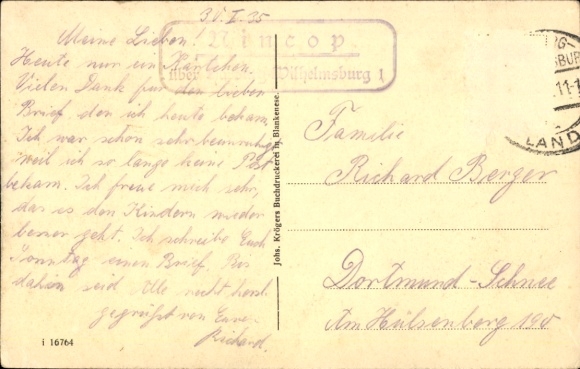 30.I.35
Meine Lieben!
Heute nur ein Kärtchen.
Vielen Dank für den lieben
Brief den ich heute bekam.
Ich war schon sehr beunruhigt
weil ich so lange keine Post
bekam. Ich freue mich sehr,
das es den Kindern wieder
besser geht. Ich schreibe Euch
Sonntag einen Brief. Bis
dahin seid Alle recht herzl.
gegrüßt von Euren
Richard.
i 16764
Nincop
über Wilhelmsburg 1
Johs. Krögers Buchdruckerei in Blankenese.
LAND
Familie
Richard Berger
Dortmund-Schnee
Am Hülsenberg 190